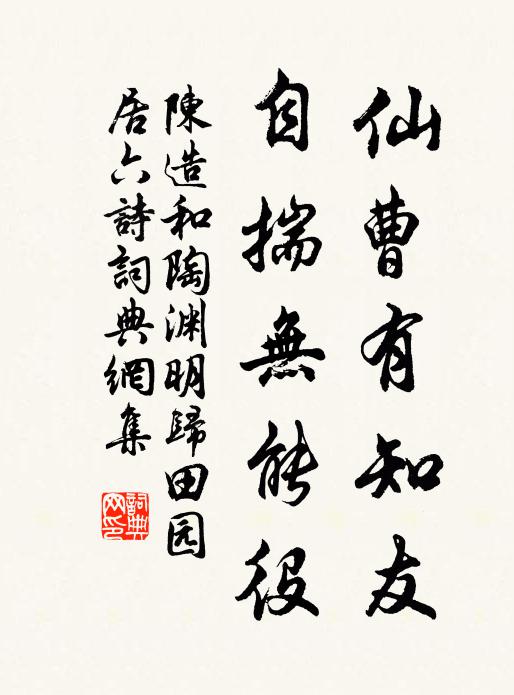 仙曹有知友
自揣無能役
陳造和陶淵明歸田园
居六詩詞典網集
詞典网印